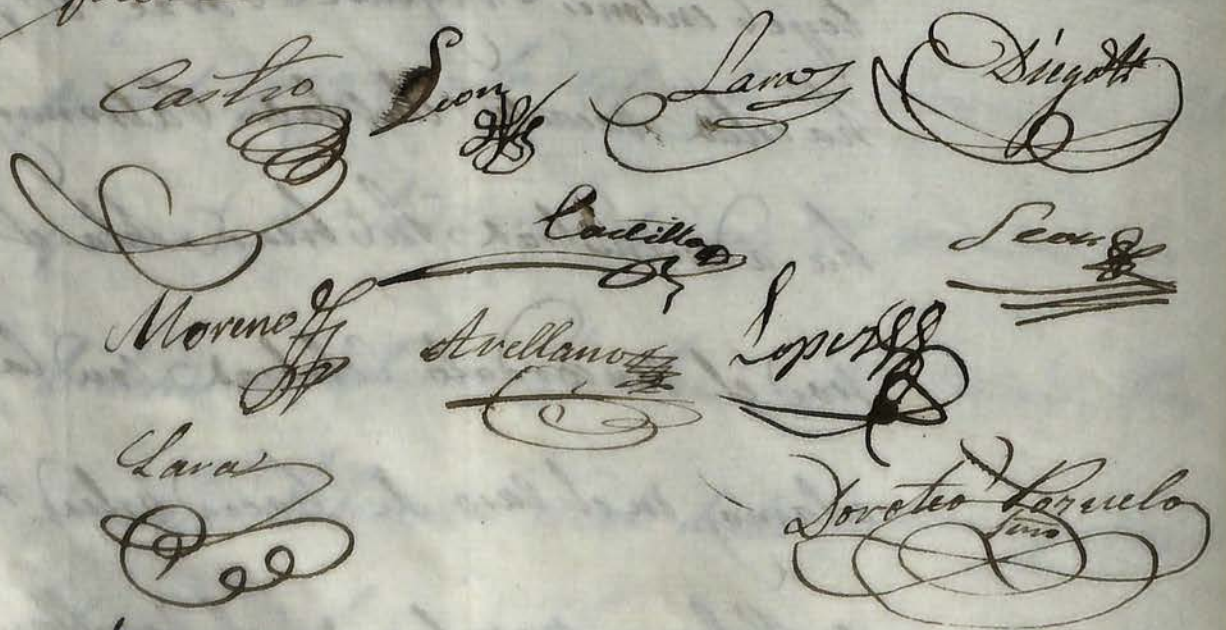 Castro Leon Lara Diego
Castillo Leon
Moreno Arellano Lopez
Lara
Doroteo Pozuelo
Srio